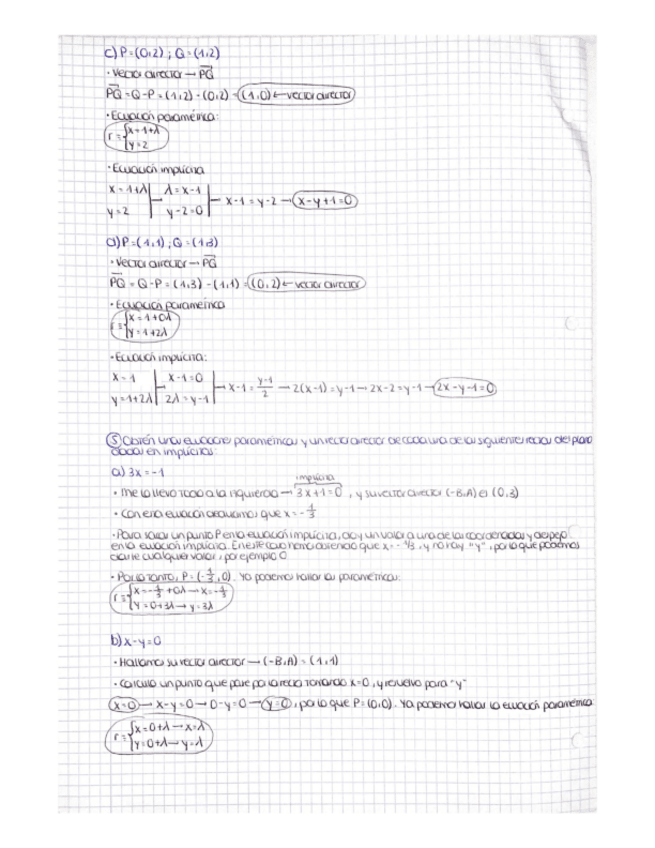 c) P=(0,2) ; Q=(1,2)
· Vector director → PQ
PQ = Q-P = (1,2) - (0,2) = (1,0) ← vector director
· Ecuación paramétrica:
r≡{x=1+λ
y=2
· Ecuación implícita
x=1+λ | λ=x-1
y=2 | y-2=0 | → x-1=y-2 → x-y+1=0
d) P=(1,1) ; Q=(1,3)
· Vector director → PQ
PQ = Q-P = (1,3) - (1,1) = (0,2) ← vector director
· Ecuación paramétrica
r≡{x=1+0λ
y=1+2λ
· Ecuación implícita:
x=1 | x-1=0
y=1+2λ | 2λ=y-1 | → x-1=y-1/2 → 2(x-1)=y-1 → 2x-2=y-1 → 2x-y-1=0
⑤ Obtén unas ecuaciones paramétricas y un vector director de cada una de las siguientes rectas del plano
dadas en implícitas:
a) 3x=-1
implícita
· Me lo llevo todo a la izquierda → 3x+1=0 , y su vector director (-B,A) es (0,3)
· Con esa ecuación deducimos que x=-1/3
· Para sacar un punto P en la ecuación implícita, doy un valor a una de las coordenadas y despejo
en la ecuación implícita. En este caso hemos obtenido que x=-1/3, y no hay "y", por lo que podemos
darle cualquier valor, por ejemplo 0
· Por lo tanto, P=(-1/3,0). Ya podemos hallar las paramétricas:
r≡{x=-1/3+0λ → x=-1/3
y=0+3λ → y=3λ
b) x-y=0
· Hallamos su vector director → (-B,A) = (1,1)
· Calculo un punto que pase por la recta tomando x=0, y resuelvo para "y"
x=0 → x-y=0 → 0-y=0 → y=0, por lo que P=(0,0). Ya podemos hallar la ecuación paramétrica:
r≡{x=0+λ → x=λ
y=0+λ → y=λ